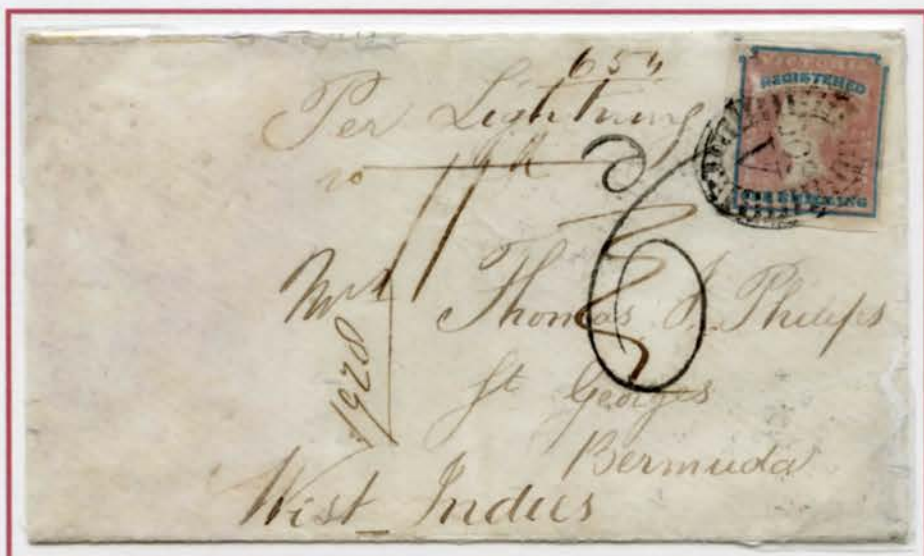 654
Per Lightning
VICTORIA
REGISTERED
ONE SHILLING
6
Mrs Thomas J. Philips
1928
St Georges
Bermuda
West Indies